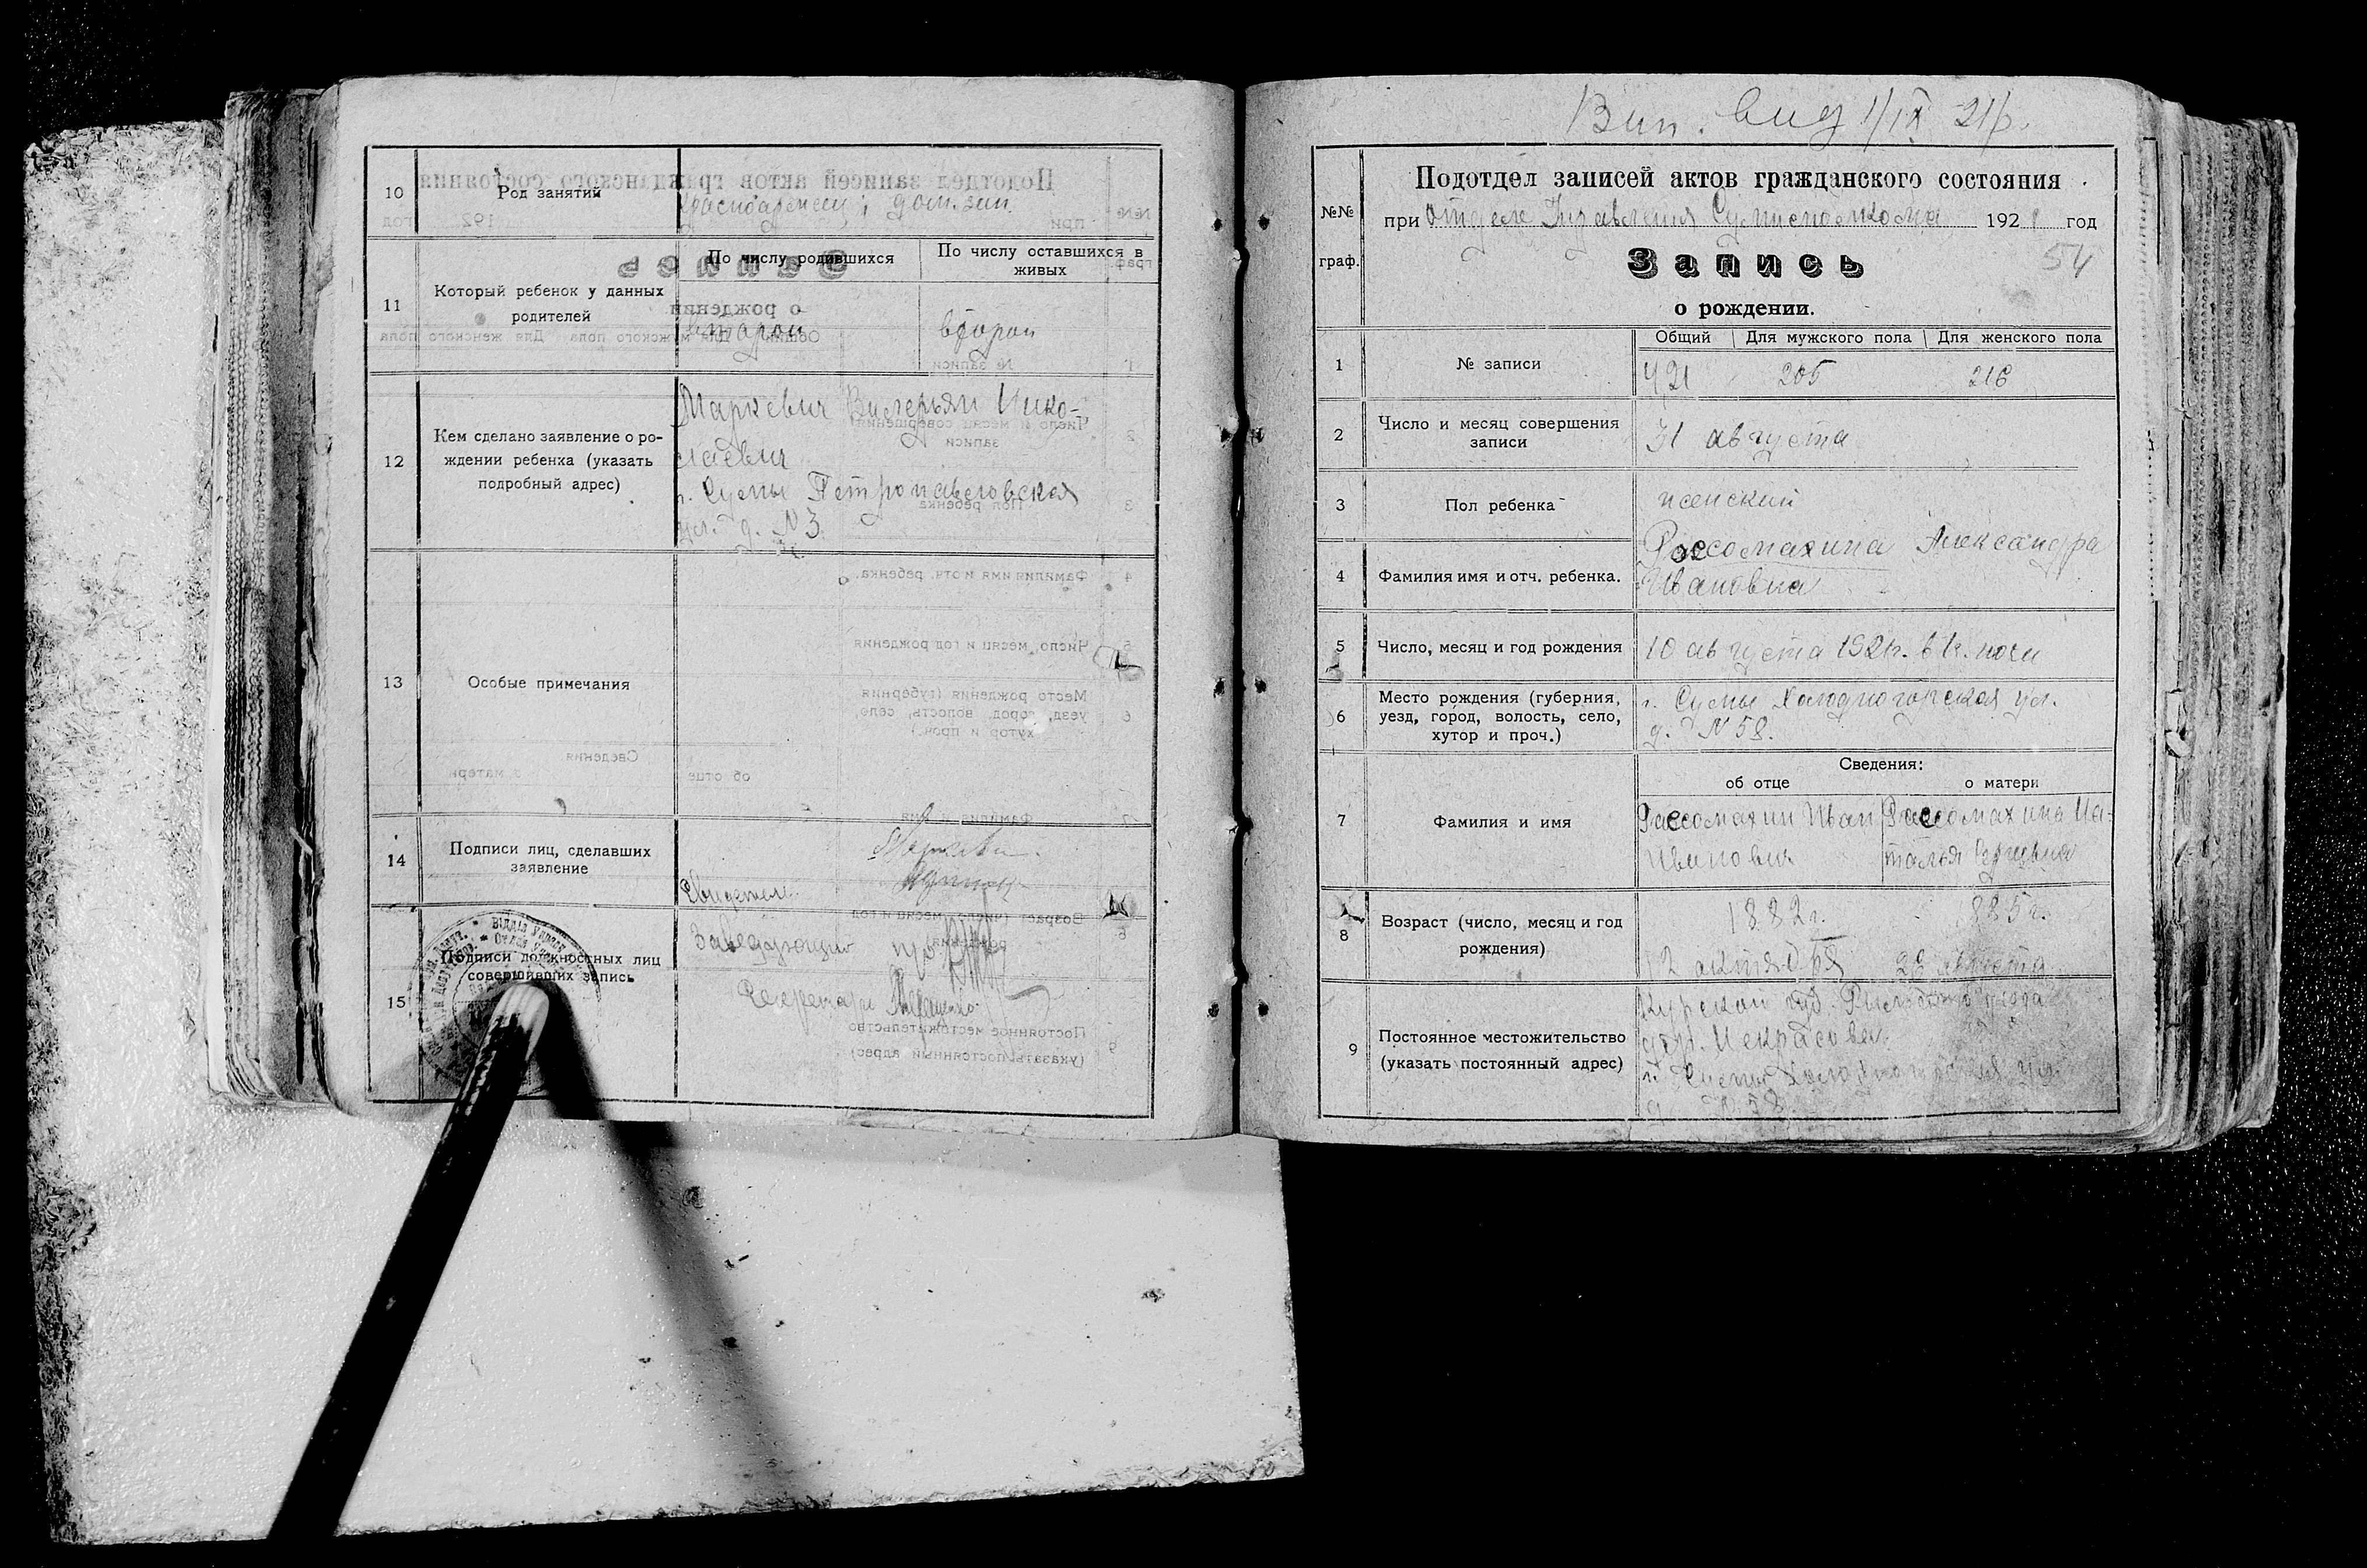 10
Род занятий
Красноармеец, дом. зан.
11
Который ребенок у данных
родителей
По числу родившихся
По числу оставшихся в
живых
второй
второй
12
Кем сделано заявление о ро-
ждении ребенка (указать
подробный адрес)
Маркевич Валерьян Нико-
лаевич
г. Сумы Петропавловская
ул. д. № 3
13
Особые примечания
14
Подписи лиц, сделавших
заявление
Свидетели
15
Подписи должностных лиц
совершивших запись
Заведующий
Секретарь
Вип. вид 1/IX 21р.
№№
граф.
Подотдел записей актов гражданского состояния
при Отделе Управления Сумисполкома 1921 год
54
Запись
о рождении.
1
№ записи
Общий
Для мужского пола
Для женского пола
421
205
216
2
Число и месяц совершения
записи
31 августа
3
Пол ребенка
женский
4
Фамилия имя и отч. ребенка.
Россомахина Александра
Ивановна
5
Число, месяц и год рождения
10 августа 1921г. в 1ч. ночи
6
Место рождения (губерния,
уезд, город, волость, село,
хутор и проч.)
г. Сумы Холодногорская ул.
д. № 58.
Сведения:
об отце
о матери
7
Фамилия и имя
Россомахин Иван
Иванович
Россомахина На-
талья Сергеевна
8
Возраст (число, месяц и год
рождения)
1882 г.
12 октября
1885 г.
26 августа
9
Постоянное местожительство
(указать постоянный адрес)
Курской губ. Рыльского уезда
дер. Некрасова
г. Сумы Холодногорская ул.
д. № 58.